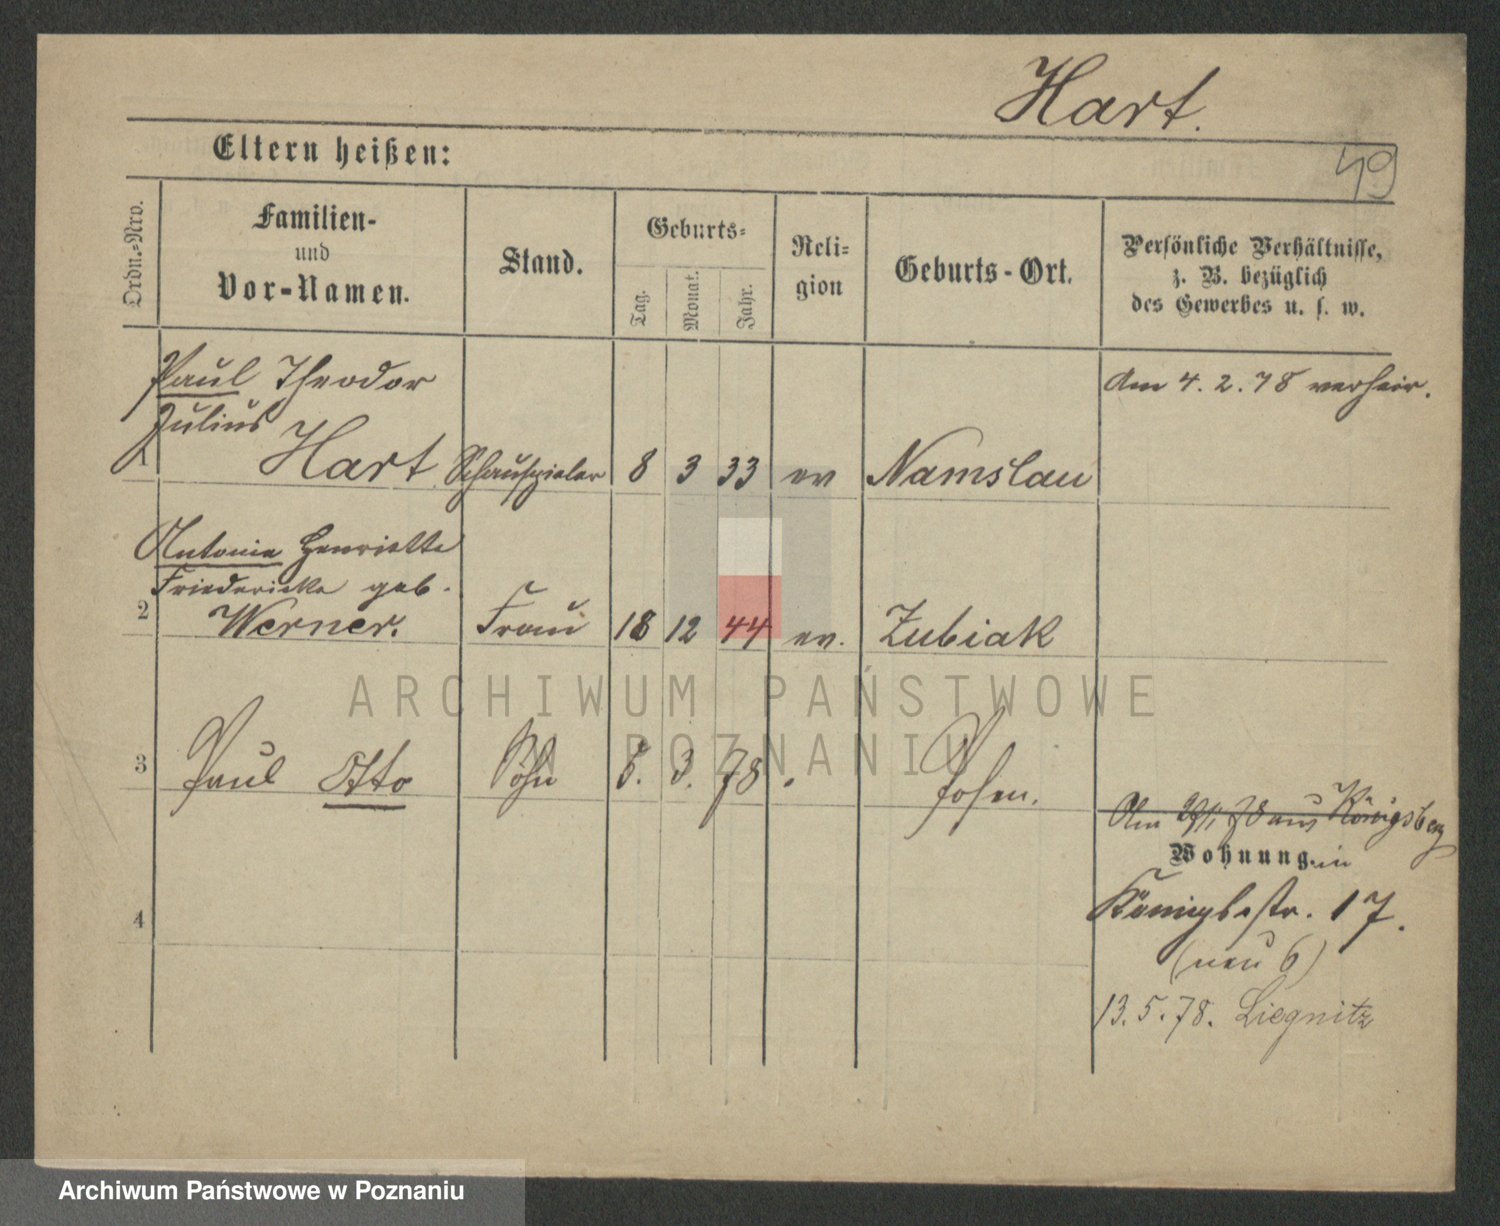 Hart.
49
Eltern heißen:
Ordn.=Nro.
Familien-
und
Vor-Namen.
Stand.
Geburts=
Tag.
Monat.
Jahr.
Reli=
gion
Geburts-Ort.
Persönliche Verhältnisse,
z. B. bezüglich
des Gewerbes u. s. w.
Paul Theodor
Julius
1 Hart Schauspieler 8 3 33 ev Namslau
Am 4. 2. 78 verheir.
Antonie Henriette
Friedericke geb.
2 Werner. Frau 18 12 44 ev. Zubiak
3 Paul Otto Sohn 5. 3. 78 Posen.
4
Am 29/1 78 aus Königsberg
Wohnung in
Königsstr. 17.
(neu 6)
13. 5. 78. Liegnitz
ARCHIWUM PAŃSTWOWE
W POZNANIU
Archiwum Państwowe w Poznaniu